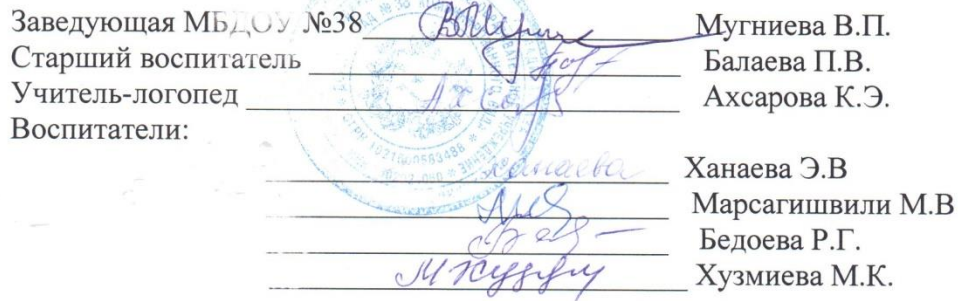 Заведующая МБДОУ №38 Мугниева В.П.
Старший воспитатель Балаева П.В.
Учитель-логопед Ахсарова К.Э.
Воспитатели:
Ханаева Ханаева Э.В
Марсагишвили М.В
Бедоева Р.Г.
Хузмиева М.К.